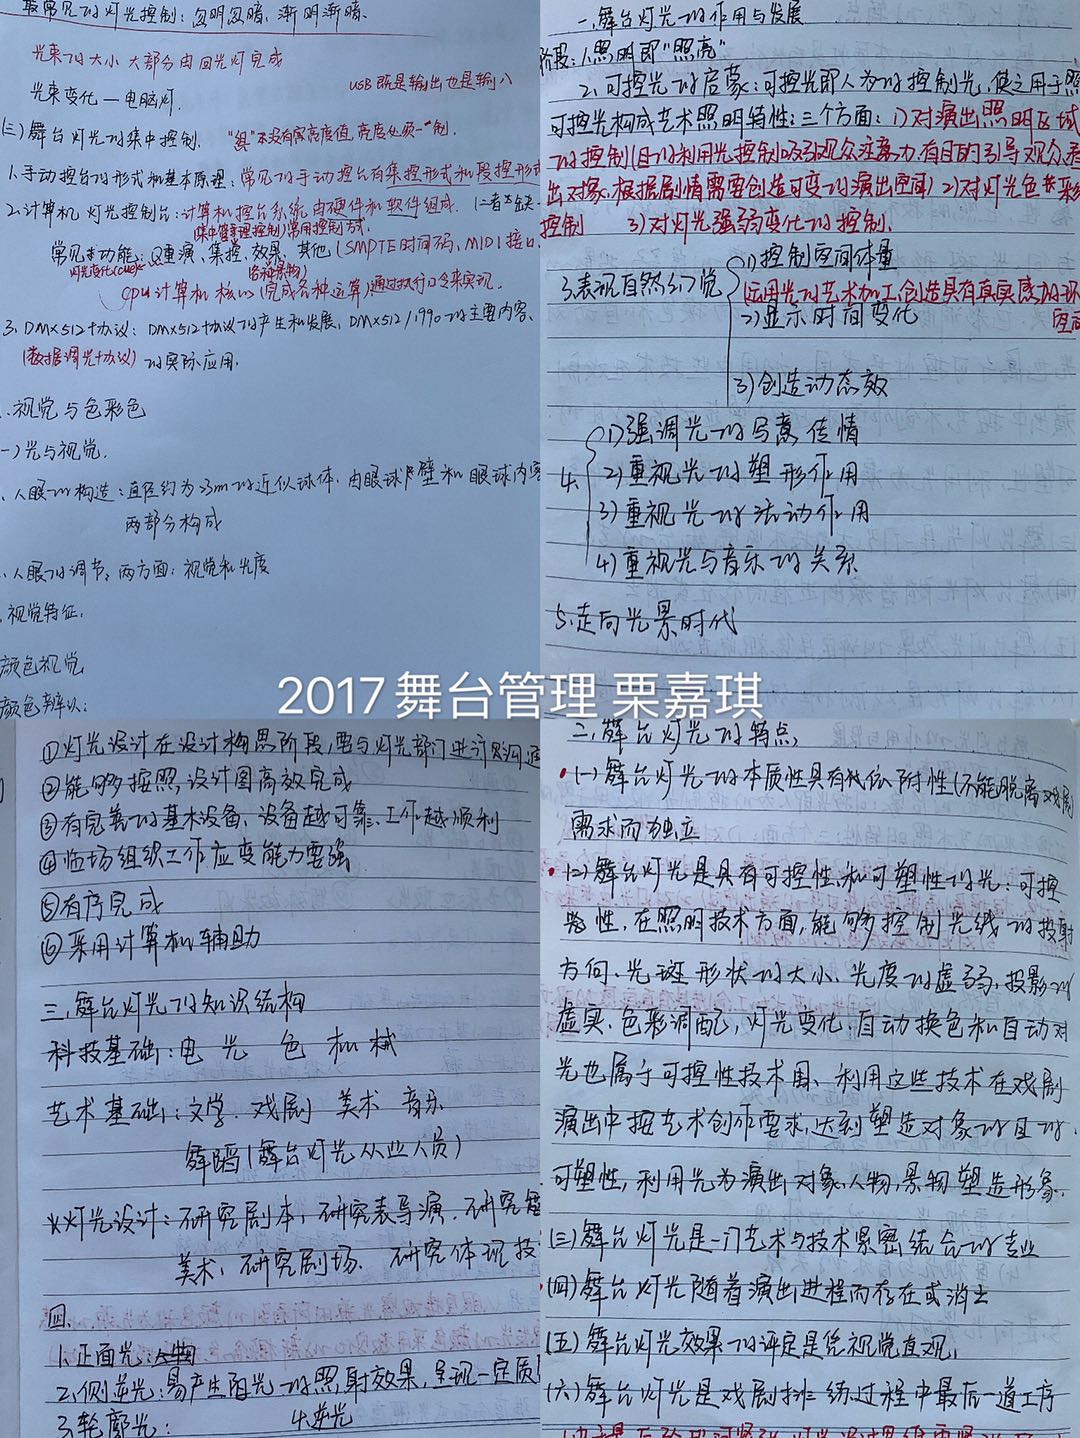 最常见的灯光控制：忽明忽暗、渐明渐暗、
光束的大小 大部分由回光灯完成
USB既是输出也是输入
光束变化—电脑灯.
(三)舞台灯光的集中控制. "组"本没有高度值,亮度处
1.手动控台的形式和基本原理：常见的手动控台有集控形式和段控形式
2.计算机灯光控制台：计算机控台系统由硬件和软件组成.(二者缺一
(集中管理控制)常用控制方式.
常见功能：Q重演、集控、效果、其他(SMPTE时间码、MIDI接口
灯光变化(cue)
CPU计算机核心(完成各种运算)通过执行口令来实现.
3.DMX512协议：DMX512协议的产生和发展、DMX512/1990的主要内容、
(数据调光协议) 的实际应用.
.视觉与色彩色
一)光与视觉.
.人眼的构造：直径约为23mm的近似球体,由眼球壁和眼球内容
两部分构成
.人眼的调节、两方面：视觉和光度
.视觉特征.
颜色视觉
颜色辨认：
一.舞台灯光的作用与发展
阶段：1.照明即"照亮"
2.可控光的启蒙：可控光即人为的控制光,使之用于照
可控光构成艺术照明特性：三个方面：1)对演出照明区域
的控制(目的利用光控制吸引观众注意力,有目的引导观众看
出对象.根据剧情需要创造可变的演出空间) 2)对灯光色彩
控制 3)对灯光强弱变化的控制.
3.表现自然幻觉
1)控制空间体量
(运用光的艺术加工,创造具有真实感的环
2)显示时间变化 空间
3)创造动态效
4.
1)强调光的写意传情
2)重视光的塑形作用
3)重视光的活动作用
4)重视光与音乐的关系
5.走向光景时代
2017舞台管理 栗嘉琪
①灯光设计在设计构思阶段,要与灯光部门进行沟通
②能够按照设计图高效完成
③有完善的基本设备、设备越可靠、工作越顺利
④临场组织工作应变能力要强
⑤有序完成
⑥采用计算机辅助
三.舞台灯光的知识结构
科技基础：电 光 色 机械
艺术基础：文学. 戏剧 美术 音乐
舞蹈(舞台灯光从业人员)
*灯光设计：研究剧本,研究表导演.研究舞
美术、研究剧场. 研究体现技
四.
1.正面光：人物
2.侧逆光：易产生阳光的照射效果,呈现一定质
3.轮廓光： 4.逆光
二.舞台灯光的特点,
(一)舞台灯光的本质性具有依附性(不能脱离戏剧
需求而为独立
(二)舞台灯光是具有可控性和可塑性的光：可控
性,在照明技术方面,能够控制光线的投射
方向、光斑形状的大小、光度的虚弱、投影的
虚实.色彩调配,灯光变化.自动换色和自动对
光也属于可控性技术围、利用这些技术在戏剧
演出中按艺术创作要求,达到塑造对象的目的.
可塑性,利用光为演出对象,人物,景物塑造形象.
(三)舞台灯光是一门艺术与技术紧密结合的专业
(四)舞台灯光随着演出进程而存在或消亡
(五)舞台灯光效果的评定是凭视觉直观,
(六)舞台灯光是戏剧排练过程中最后一道工序